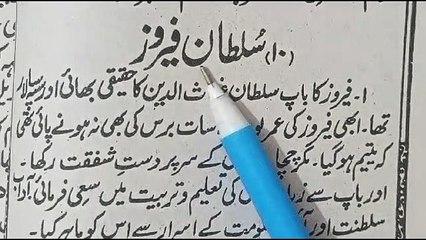 (۱۰) سُلطان فیروز
۱۔ فیروز کا باپ سلطان الدین کا حقیقی بھائی اور سپہ سالار
تھا۔ ابھی فیروز کی عمر سات برس کی بھی نہ ہونے پائی تھی
کہ یتیم ہو گیا۔ مگر چچا کے سر پر دستِ شفقت رکھا۔
اور باپ سے کی تعلیم و تربیت میں سعی فرمائی، آداب
سلطنت اور کے اسرار سے اس کو ماہر کیا۔